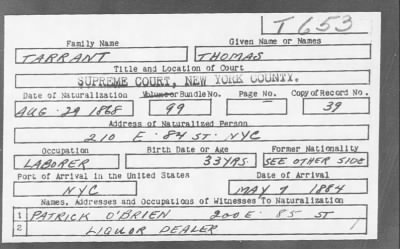 T 653
Family Name Given Name or Names
TARRANT THOMAS
Title and Location of Court
SUPREME COURT, NEW YORK COUNTY.
Date of Naturalization Volume or Bundle No. Page No. Copy of Record No.
AUG. 29 1868 99 39
Address of Naturalized Person
210 E. 84 ST. NYC
Occupation Birth Date or Age Former Nationality
LABORER 33 YRS. SEE OTHER SIDE
Port of Arrival in the United States Date of Arrival
NYC MAY 7 1884
Names, Addresses and Occupations of Witnesses To Naturalization
1 PATRICK O'BRIEN 200 E. 85 ST
2 LIQUOR DEALER